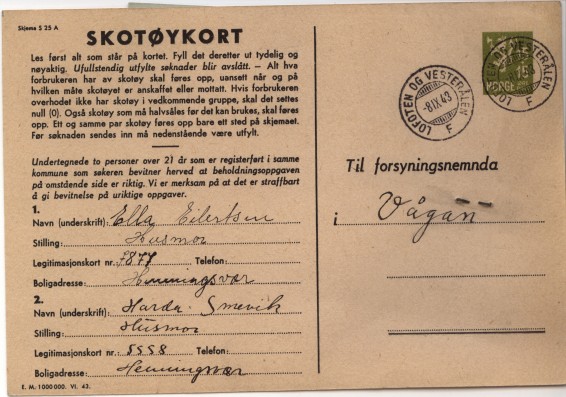 Skjema S 25 A
SKOTØYKORT
Les først alt som står på kortet. Fyll det deretter ut tydelig og
nøyaktig. Ufullstendig utfylte søknader blir avslått. — Alt hva
forbrukeren har av skotøy skal føres opp, uansett når og på
hvilken måte skotøyet er anskaffet eller mottatt. Hvis forbrukeren
overhodet ikke har skotøy i vedkommende gruppe, skal det settes
null (0). Også skotøy som må halvsåles før det kan brukes, skal føres
opp. Ett og samme par skotøy føres opp bare ett sted på skjemaet.
Før søknaden sendes inn må nedenstående være utfylt.
Undertegnede to personer over 21 år som er registerført i samme
kommune som søkeren bevitner herved at beholdningsoppgaven
på omstående side er riktig. Vi er merksam på at det er straffbart
å gi bevitnelse på uriktige oppgaver.
1.
Navn (underskrift): Ella Eilertsen
Stilling: Husmor
Legitimasjonskort nr. 7877 Telefon:
Boligadresse: Henningsvær
2.
Navn (underskrift): Harda Smevik
Stilling: Husmor
Legitimasjonskort nr. 5558 Telefon:
Boligadresse: Henningsvær
E. M. 1000000. VI. 43.
LOFOTEN OG VESTERÅLEN
-8.IX.43
F
LOFOTEN OG VESTERÅLEN
F
NORGE
Til forsyningsnemnda
i Vågan